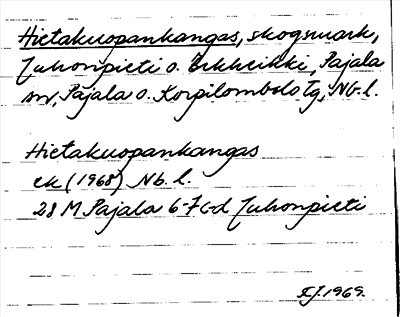 Hietakuopankangas, skogsmark,
Juhonpieti o. Erkheikki, Pajala
sn, Pajala o. Korpilombolo tg, Nb. l.
Hietakuopankangas
ek (1968) Nb. l.
28 M Pajala 6-7 c-d Juhonpieti
KJ. 1969.